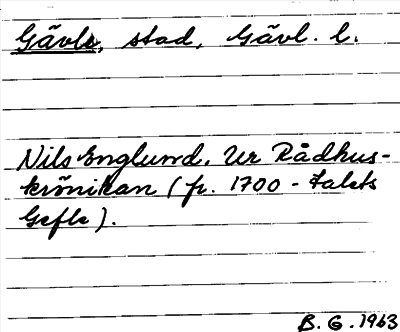 Gävle, stad, Gävl. l.
Nils Englund. Ur Rådhus-
krönikan (fr. 1700-talets
Gefle).
B. G. 1963